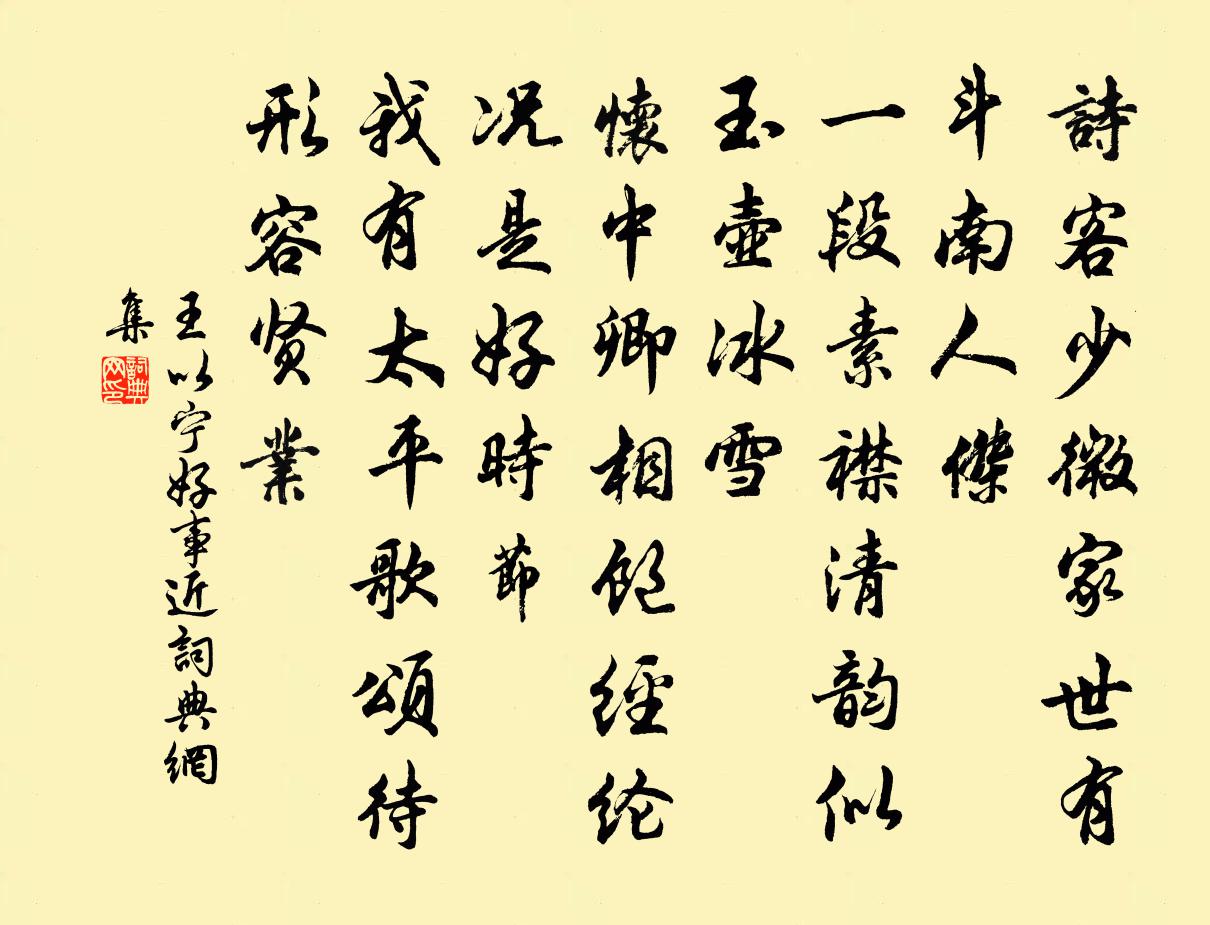 詩客少微家世有
斗南人傑
一段素襟清韵似
玉壺冰雪
懷中卿相飽經纶
况是好時節
我有太平歌頌待
形容贤業
王以宁好事近詞典網
集
詞典
网印